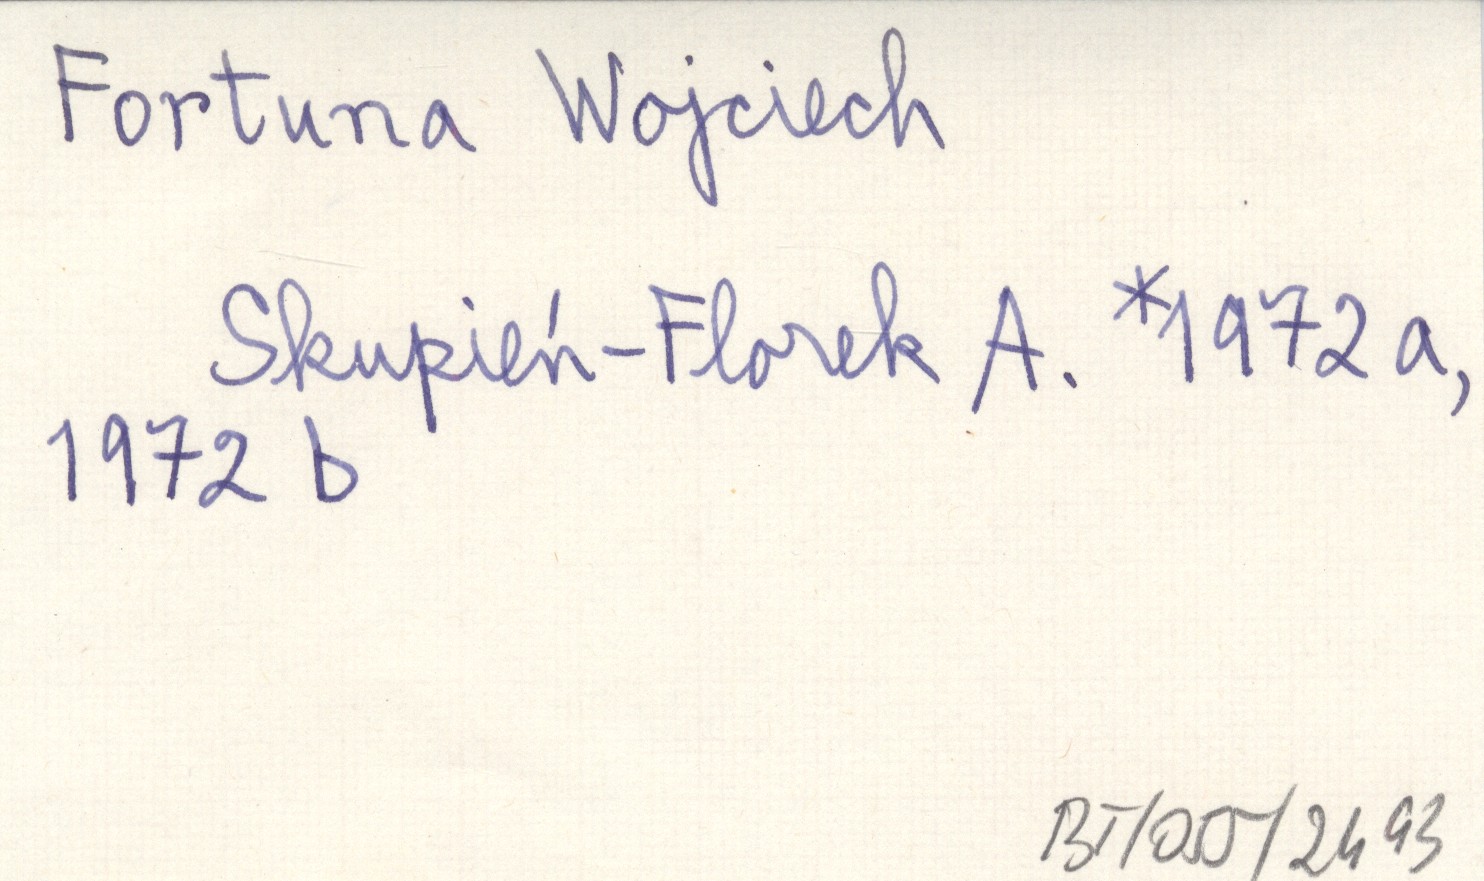 Fortuna Wojciech
Skupień-Florek A. *1972 a,
1972 b